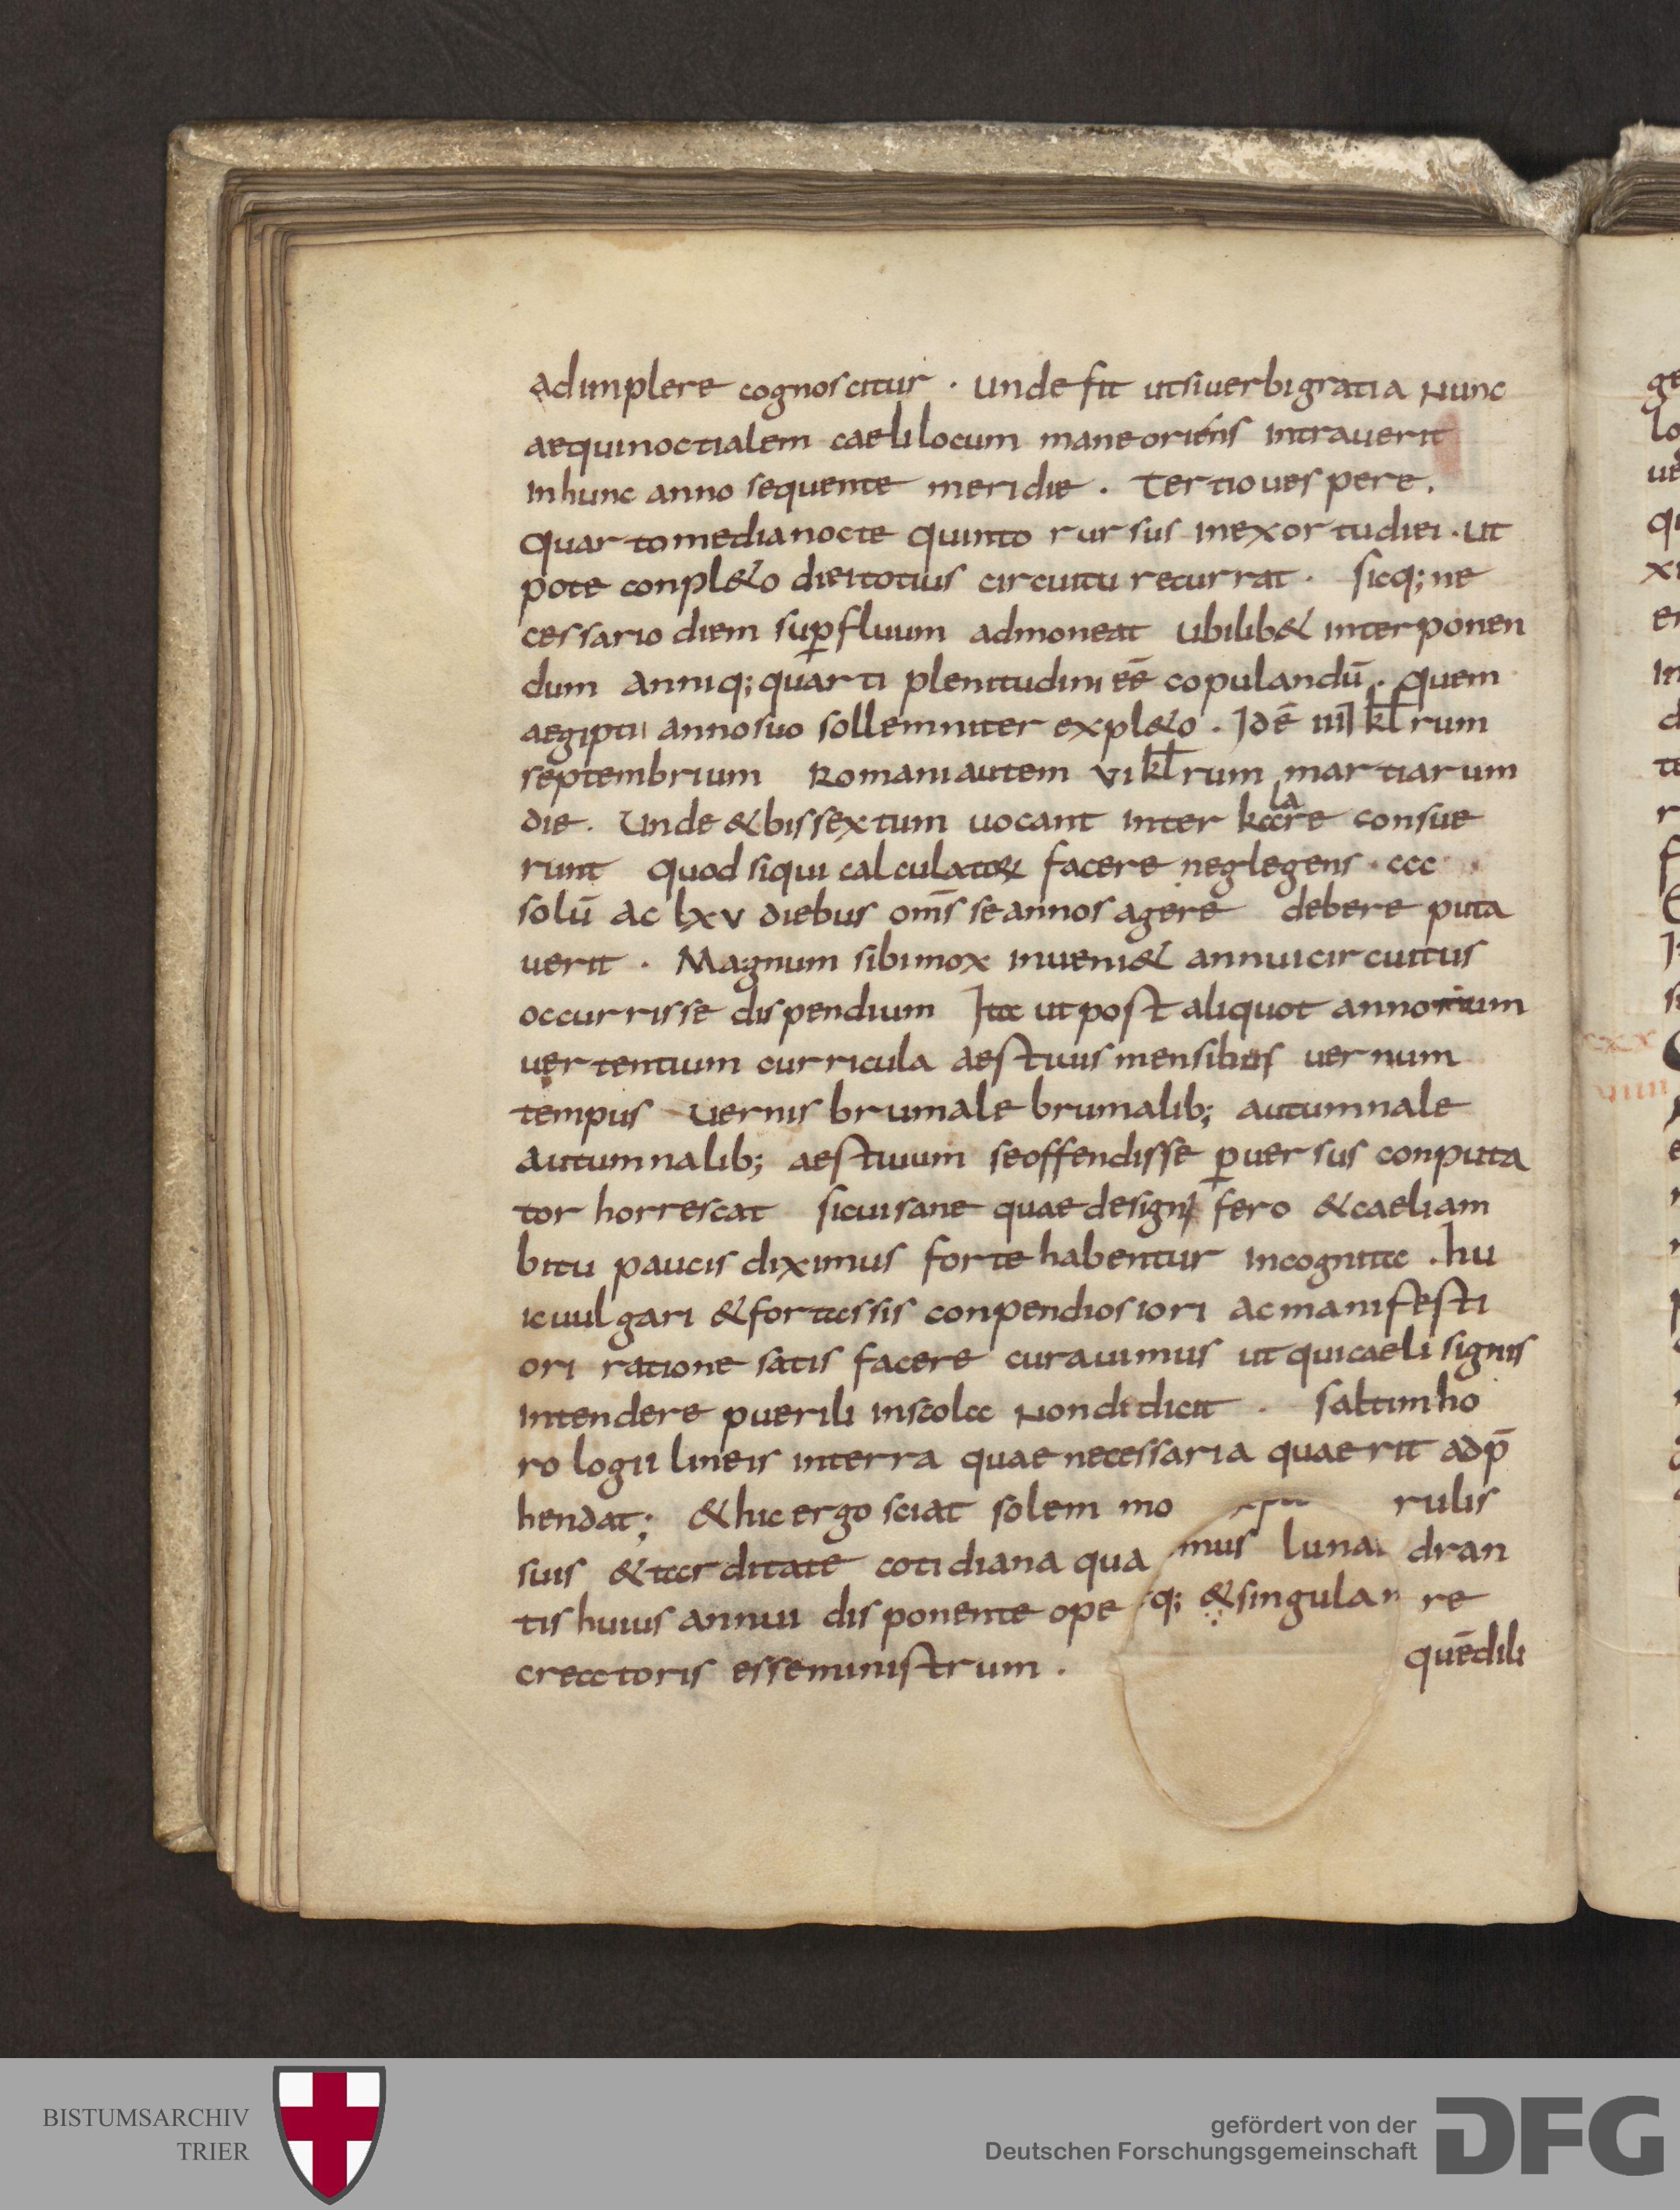 adimplere cognoscitur · unde fit utsiuerbigratia nunc
aequinoctialem caelilocum maneoriens intrauerit
inhunc anno sequente meridie . tertiouespere.
quartomedianocte quinto rursus inexortudiei · ut
pote conpl&o dieitotius circuitu recurrat · sicq; ne
cessario diem sup̱fluum admoneat ubilib& interponen
dum anniq; quarti plenitudini eē copulandū . quem
aegiptii annosuo sollemniter expl&o . Idē iiii kl̄rum
septembrium Romaniautem vi kl̄rum martiarum
die . Unde &bissextum uocant inter kalare consue
runt quod siqui calculator facere neglegens · ccc
solū ac lxv diebus om̄s seannos agere debere puta
uerit . Magnum sibimox inueni& annuicircuitus
occurrisse dispendium Ita utpost aliquot annorum
uertentium curricula aestiuis mensibus uernum
tempus uernis brumale brumalib; autumnale
autumnalib; aestiuum seoffendisse p̱uersus conputa
tor horrescat sicuisane quaedesigni fero &caeliam
bitu paucis diximus forte habentur incognita . hu
icuulgari &fortassis conpendiosiori acmanifesti
ori ratione satis facere curauimus ut quicaeli signis
intendere puerili inscola nondidicit . saltimho
rologii lineis interra quae necessaria quaerit adp̄
hendat; &hic ergo sciat solem mo rulis
suis &tarditate cotidiana qua mus luna dran
tis huius annui disponente ope q; &singular re
creatoris esseministrum . quēdili
BISTUMSARCHIV
TRIER
gefördert von der
Deutschen Forschungsgemeinschaft
DFG